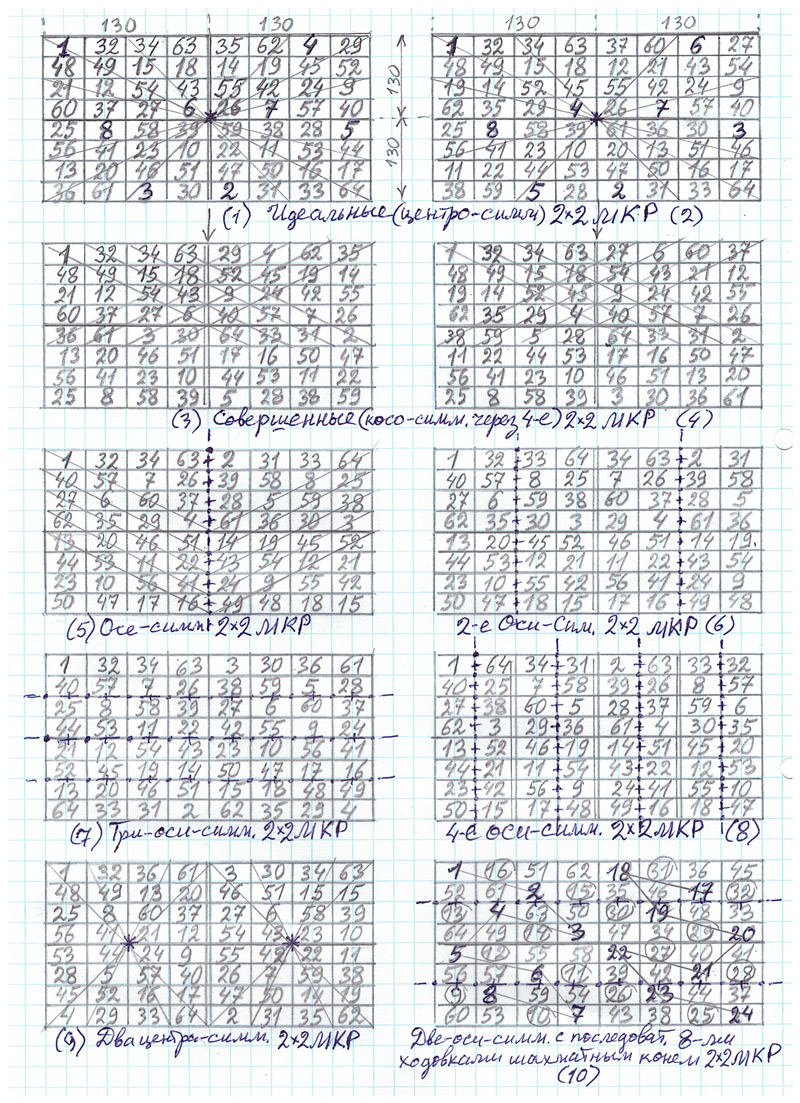 130 130 130 130
1 32 34 63 35 62 4 29 1 32 34 63 37 60 6 27
48 49 15 18 14 19 45 52 48 49 15 18 12 21 43 54
21 12 54 43 55 42 24 9 130 19 14 52 45 55 42 24 9
60 37 27 6 26 7 57 40 62 35 29 4 26 7 57 40
25 8 58 39 59 38 28 5 25 8 58 39 61 36 30 3
56 41 23 10 22 11 53 44 130 56 41 23 10 20 13 51 46
13 20 46 51 47 50 16 17 11 22 44 53 47 50 16 17
36 61 3 30 2 31 33 64 38 59 5 28 2 31 33 64
(1) Идеальные (центро-симм) 2×2 МКР (2)
1 32 34 63 29 4 62 35 1 32 34 63 27 6 60 37
48 49 15 18 52 45 19 14 48 49 15 18 54 43 21 12
21 12 54 43 9 24 42 55 19 14 52 45 9 24 42 55
60 37 27 6 40 57 7 26 62 35 29 4 40 57 7 26
36 61 3 30 64 33 31 2 38 59 5 28 64 33 31 2
13 20 46 51 17 16 50 47 11 22 44 53 17 16 50 47
56 41 23 10 44 53 11 22 56 41 23 10 46 51 13 20
25 8 58 39 5 28 38 59 25 8 58 39 3 30 36 61
(3) Совершенные (косо-симм. через 4-е) 2×2 МКР (4)
1 32 34 63 2 31 33 64 1 32 33 64 34 63 2 31
40 57 7 26 39 58 8 25 40 57 8 25 7 26 39 58
27 6 60 37 28 5 59 38 27 6 59 38 60 37 28 5
62 35 29 4 61 36 30 3 62 35 30 3 29 4 61 36
13 20 46 51 14 19 45 52 13 20 45 52 46 51 14 19
44 53 11 22 43 54 12 21 44 53 12 21 11 22 43 54
23 10 56 41 24 9 55 42 23 10 55 42 56 41 24 9
50 47 17 16 49 48 18 15 50 47 18 15 17 16 49 48
(5) Осе-симм 2×2 МКР 2-е Оси-Сим. 2×2 МКР (6)
1 32 34 63 3 30 36 61 1 64 34 31 2 63 33 32
40 57 7 26 38 59 5 28 40 25 7 58 39 26 8 57
25 8 58 39 27 6 60 37 27 38 60 5 28 37 59 6
44 53 11 22 42 55 9 24 62 3 29 36 61 4 30 35
21 12 54 43 23 10 56 41 13 52 46 19 14 51 45 20
52 45 19 14 50 47 17 16 44 21 11 54 43 22 12 53
13 20 46 51 15 18 48 49 23 42 56 9 24 41 55 10
64 33 31 2 62 35 29 4 50 15 17 48 49 16 18 47
(7) Три-оси-симм. 2×2 МКР 4-е оси-симм. 2×2 МКР (8)
1 32 36 61 3 30 34 63 1 16 51 62 18 31 36 45
48 49 13 20 46 51 15 15 52 61 2 15 35 46 17 32
25 8 60 37 27 6 58 39 13 4 63 50 30 19 48 33
56 41 21 12 54 43 23 10 64 49 14 3 47 34 29 20
53 44 24 9 55 42 22 11 5 12 55 58 22 27 40 41
28 5 57 40 26 7 59 38 56 57 6 11 39 42 21 28
45 52 16 17 47 50 14 19 9 8 59 54 26 23 44 37
4 29 33 64 2 31 35 62 60 53 10 7 43 38 25 24
(9) Два центра-симм. 2×2 МКР Две-оси-симм. с последоват. 8-ми
ходовками шахматным конем 2×2 МКР
(10)